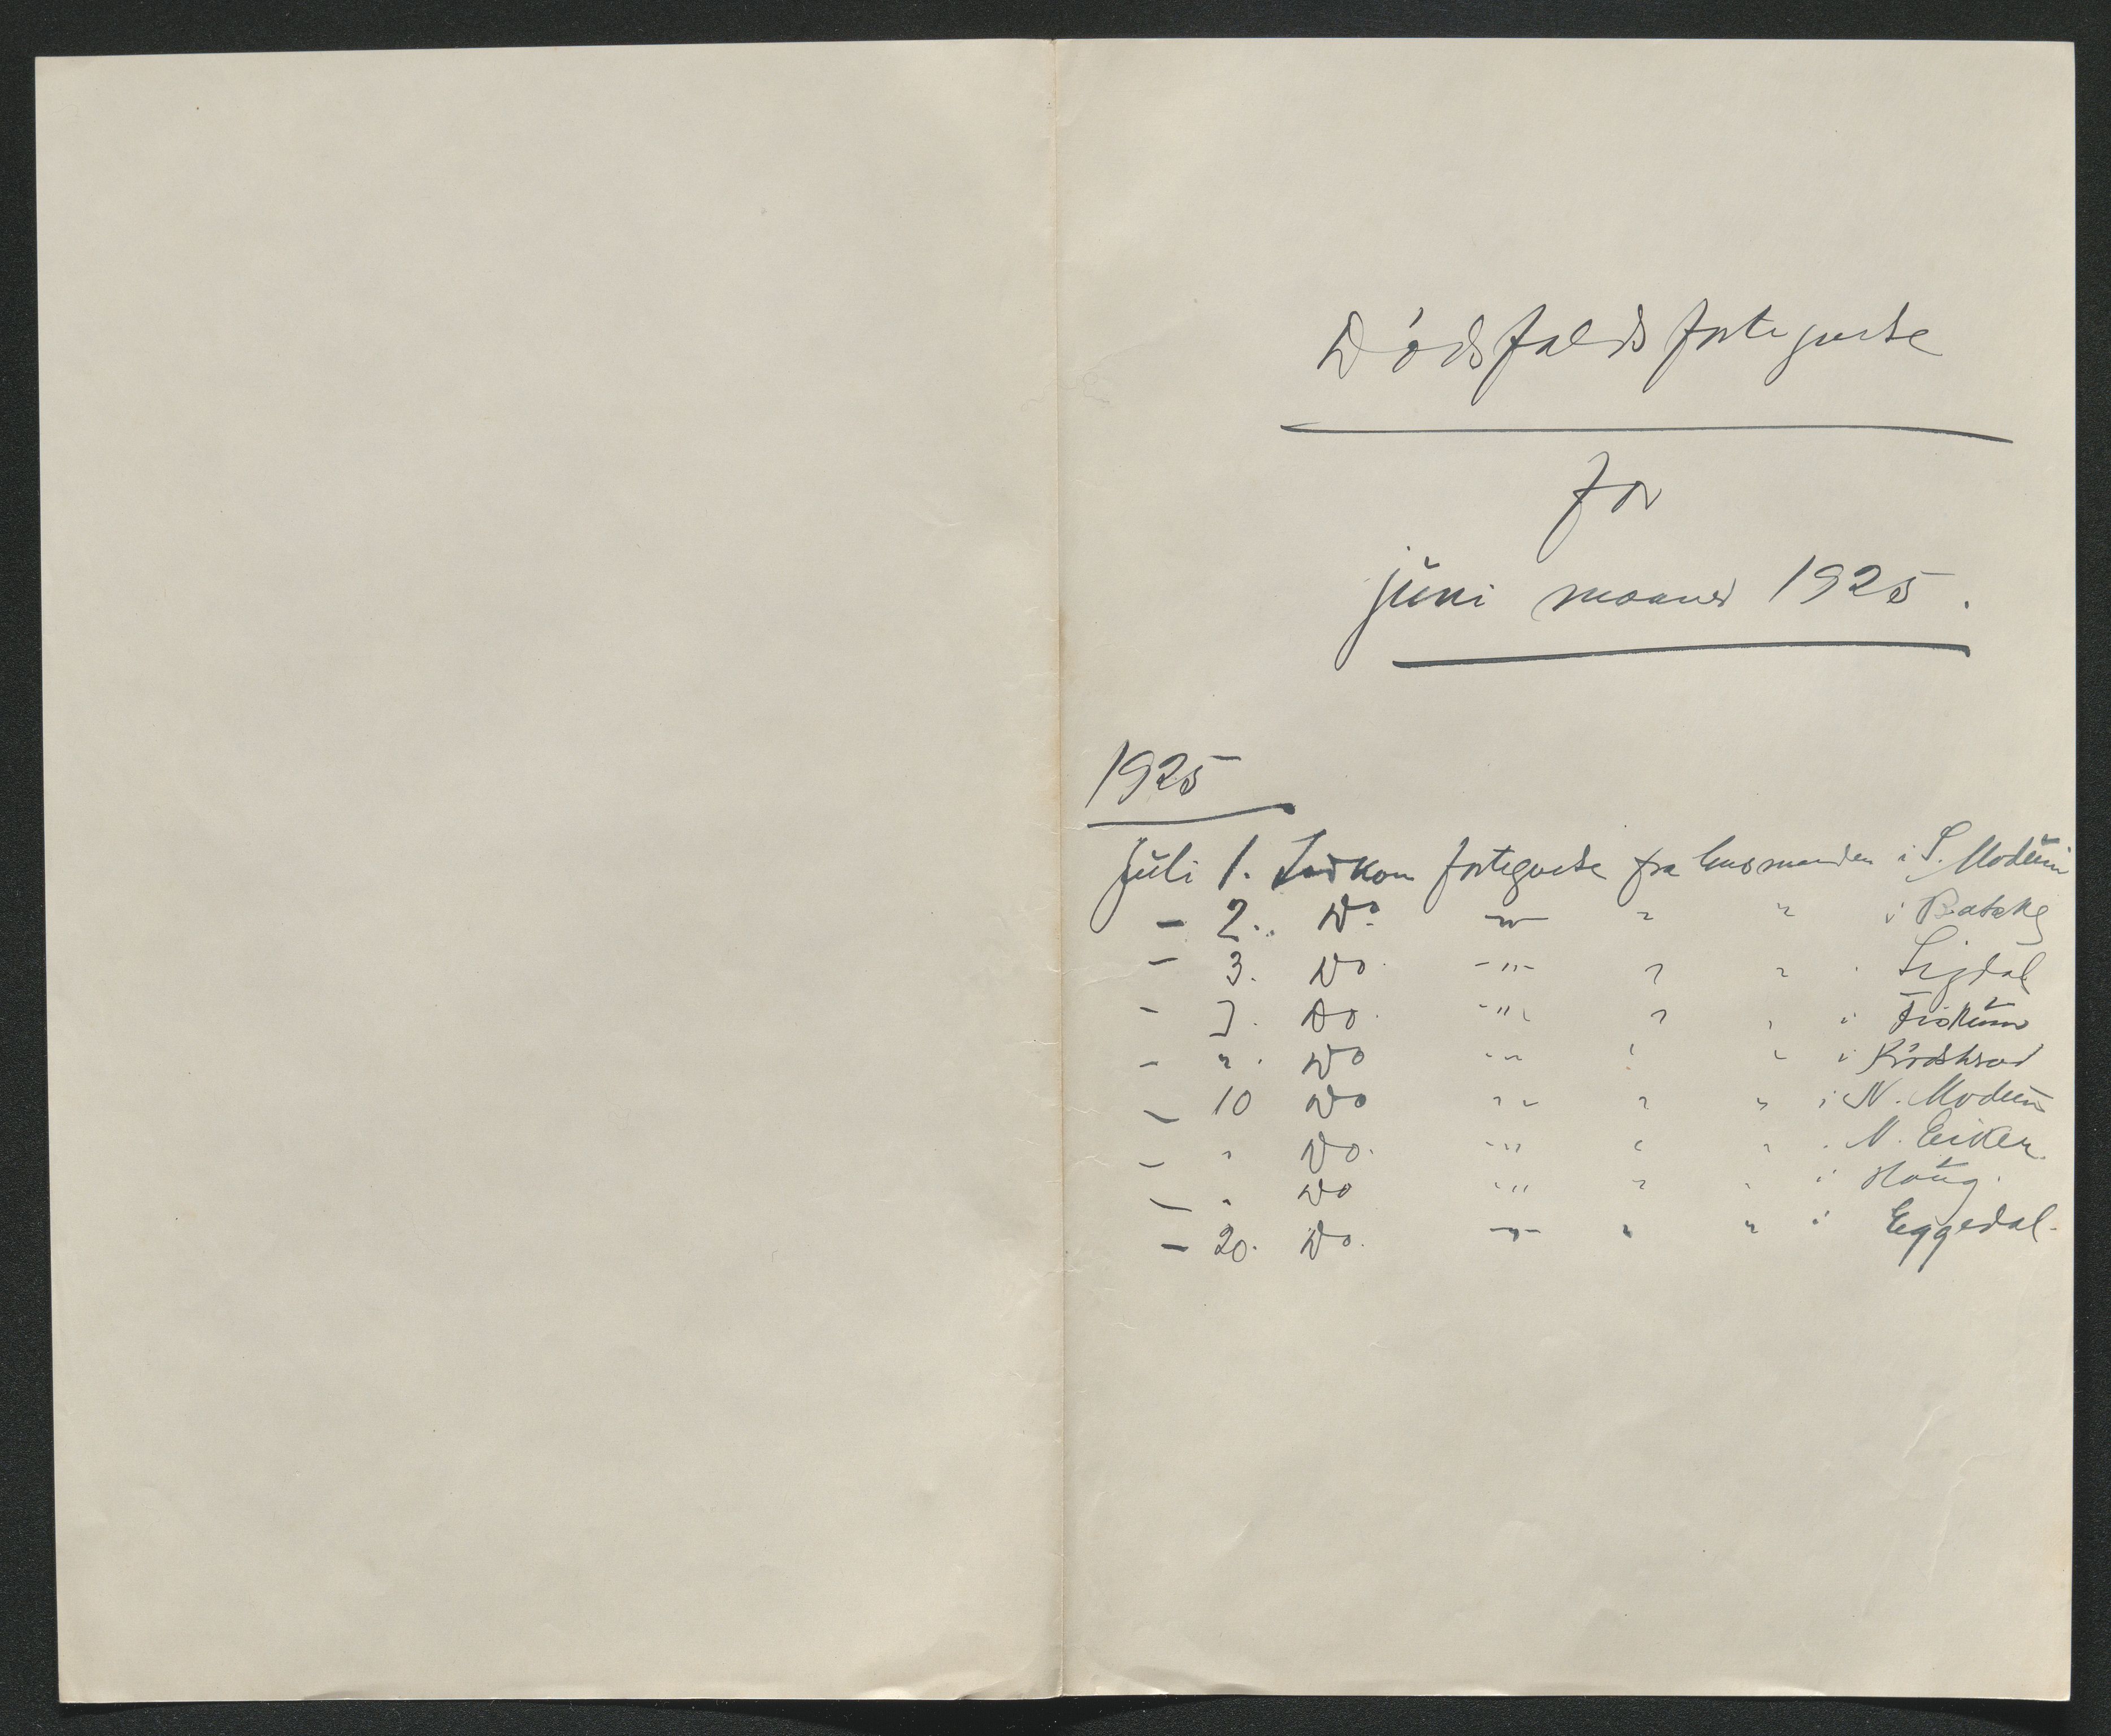 Dødsfaldsfortegnelse
for
juni maaned 1925.
1925
Juli 1. Indkom fortegnelse fra lensmanden i S. Modum
— 2. Do — " — " " i
— 3. Do. — " — " " Sigdal
— 7. Do. — " — " " i Fiskum
— " . Do — " — " " i Krødshrad
— 10 Do " " " " i N. Modum
— " Do. — " — " " N. Eiker.
— " Do — " — " " i Haug.
— 20. Do. — " — " " i Eggedal.